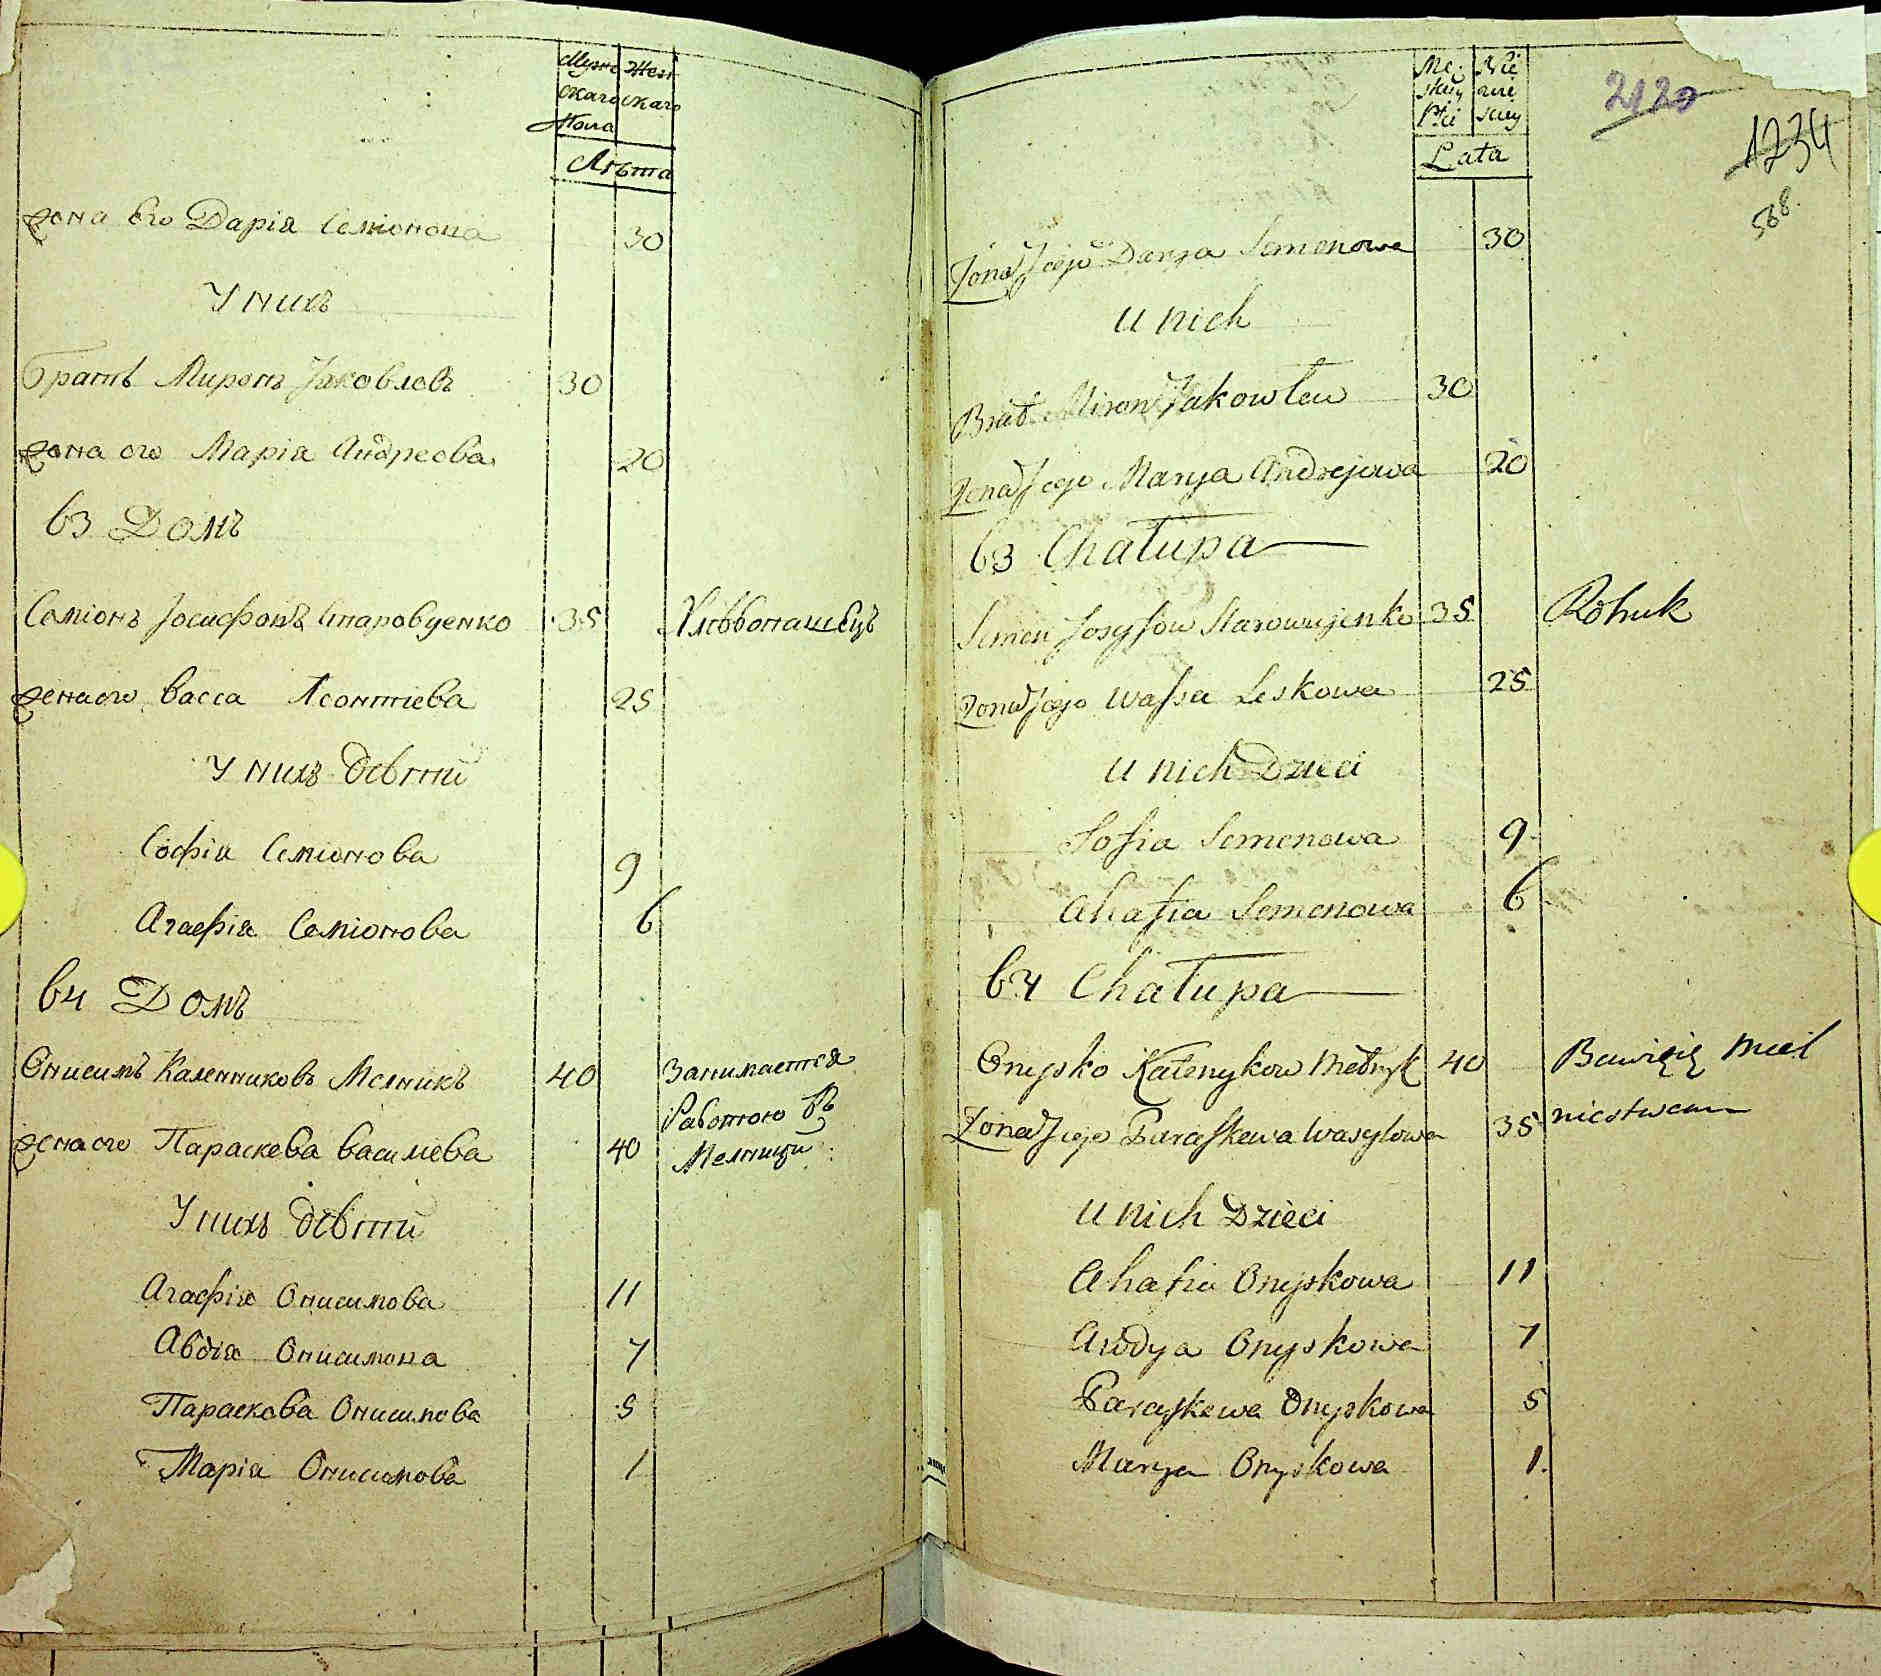 Мужескаго Женскаго
Пола
Лѣта
жена его Дарія Семіонова 30
У нихъ
братъ Миронъ Јаковлевъ 30
жена его Марія Андреева 20
63 Домъ
Семіонъ Јосифовъ Старовуенко 35 Хлѣбопашецъ
жена его Васса Леонтіева 25
У нихъ дѣтти
Софія Семіонова 9
Агафія Семіонова 6
64 Домъ
Онисимъ Каленниковъ Мелникъ 40 Занимается
Работою въ
жена его Параскева Василіева 40 Мелници
У нихъ дѣтти
Агафія Онисимова 11
Авдія Онисимова 7
Параскева Онисимова 5
Марія Онисимова 1
Lata
2120
1234
568.
Żona Jego Darya Semenowa 30
U nich
Brat Miron Jakowlew 30
Żona Jego Marya Andrejowa 20
63 Chałupa
Semen Josyfow Starowujenko 35 Rolnik
Żona Jego Wassa Leskowa 25
U nich Dzieci
Sofia Semenowa 9
Ahafia Semenowa 6
64 Chałupa
Onysko Kałenykow Mełnyk 40 Bawi się Miel
Żona Jego Paraskewa Wasylowa 35 nictwem
U nich Dzieci
Ahafia Onyskowa 11
Awdya Onyskowa 7
Paraskewa Onyskowa 5
Marya Onyskowa 1